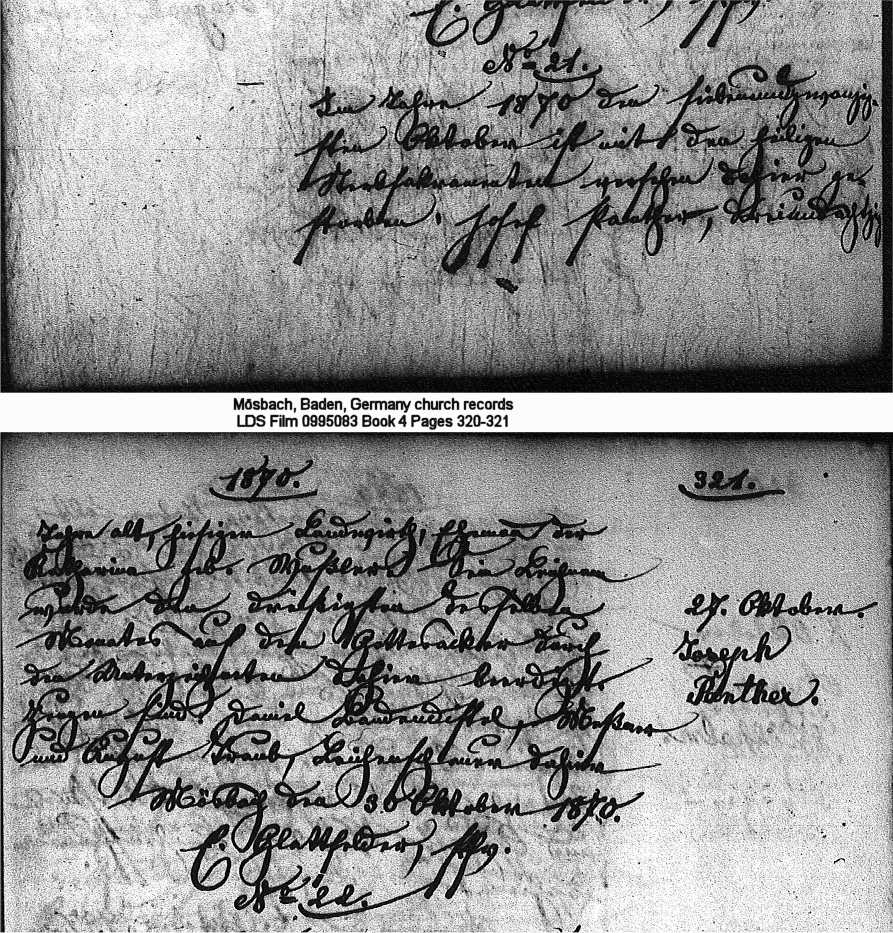 E. Glattfelder, Pfv.
No 21.
Im Jahre 1870 den siebenundzwanzig-
sten Oktober ist mit den heiligen
Sterbsakramenten versehen dahier ge-
storben: Josef Panther, dreiundachtzig
Mösbach, Baden, Germany church records
LDS Film 0995083 Book 4 Pages 320-321
1870.
321.
Jahre alt, hiesiger Landwirth, Ehemann der
Katharina geb. Mußler. Sein Leichnam
wurde den dreißigsten desselben
Monates auf dem Gottesacker durch
den Unterzeichneten dahier beerdigt.
Zeugen sind: Daniel Bodendistel, Meßner
und August Traub, Leichenschauer dahier
Mösbach den 30 Oktober 1870.
E. Glattfelder, Pfv.
No 22.
27. Oktober.
Joseph
Panther.